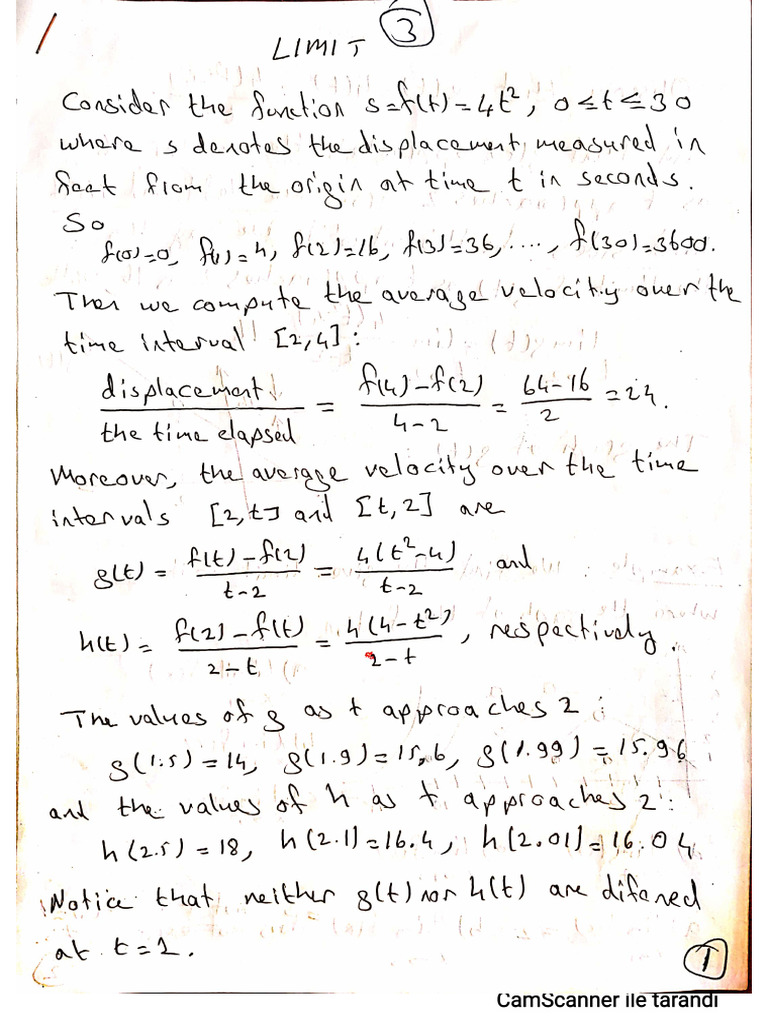 LIMIT
3
Consider the function s=f(t)=4t², 0≤t≤30
where s denotes the displacement measured in
feet from the origin at time t in seconds.
So
f(0)=0, f(1)=4, f(2)=16, f(3)=36, ...., f(30)=3600.
Then we compute the average velocity over the
time interval [2,4]:
displacement / the time elapsed = f(4)-f(2) / 4-2 = 64-16 / 2 = 24.
Moreover, the average velocity over the time
intervals [2,t] and [t,2] are
g(t) = f(t)-f(2) / t-2 = 4(t²-4) / t-2 and
h(t) = f(2)-f(t) / 2-t = 4(4-t²) / 2-t, respectively.
The values of g as t approaches 2:
g(1.5)=14, g(1.9)=15,6, g(1.99)=15.96
and the values of h as t approaches 2:
h(2.5)=18, h(2.1)=16.4, h(2.01)=16.04
Notice that neither g(t) nor h(t) are difened
at t=2.
1
CamScanner ile tarandı